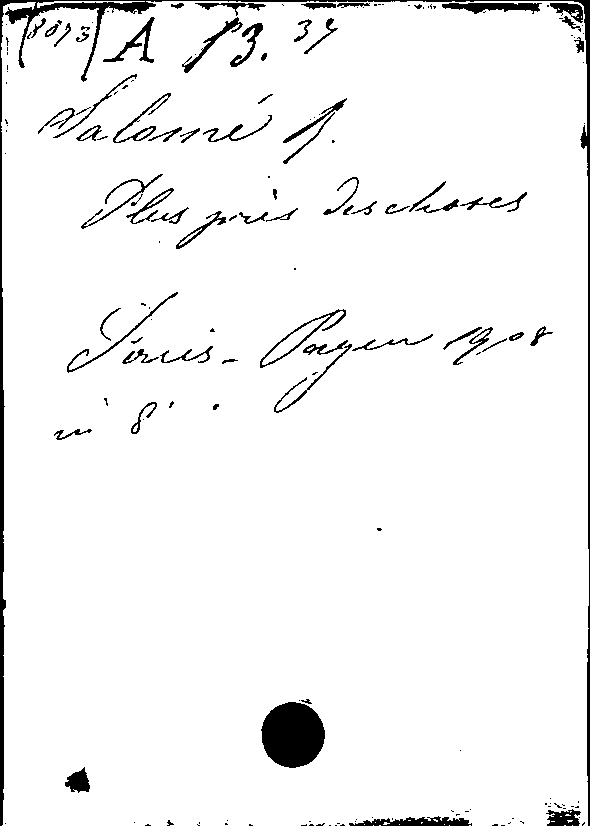 (8093) A 13. 34
Salomé J.
Plus près des choses
Paris - Payen 1908
in 8°.